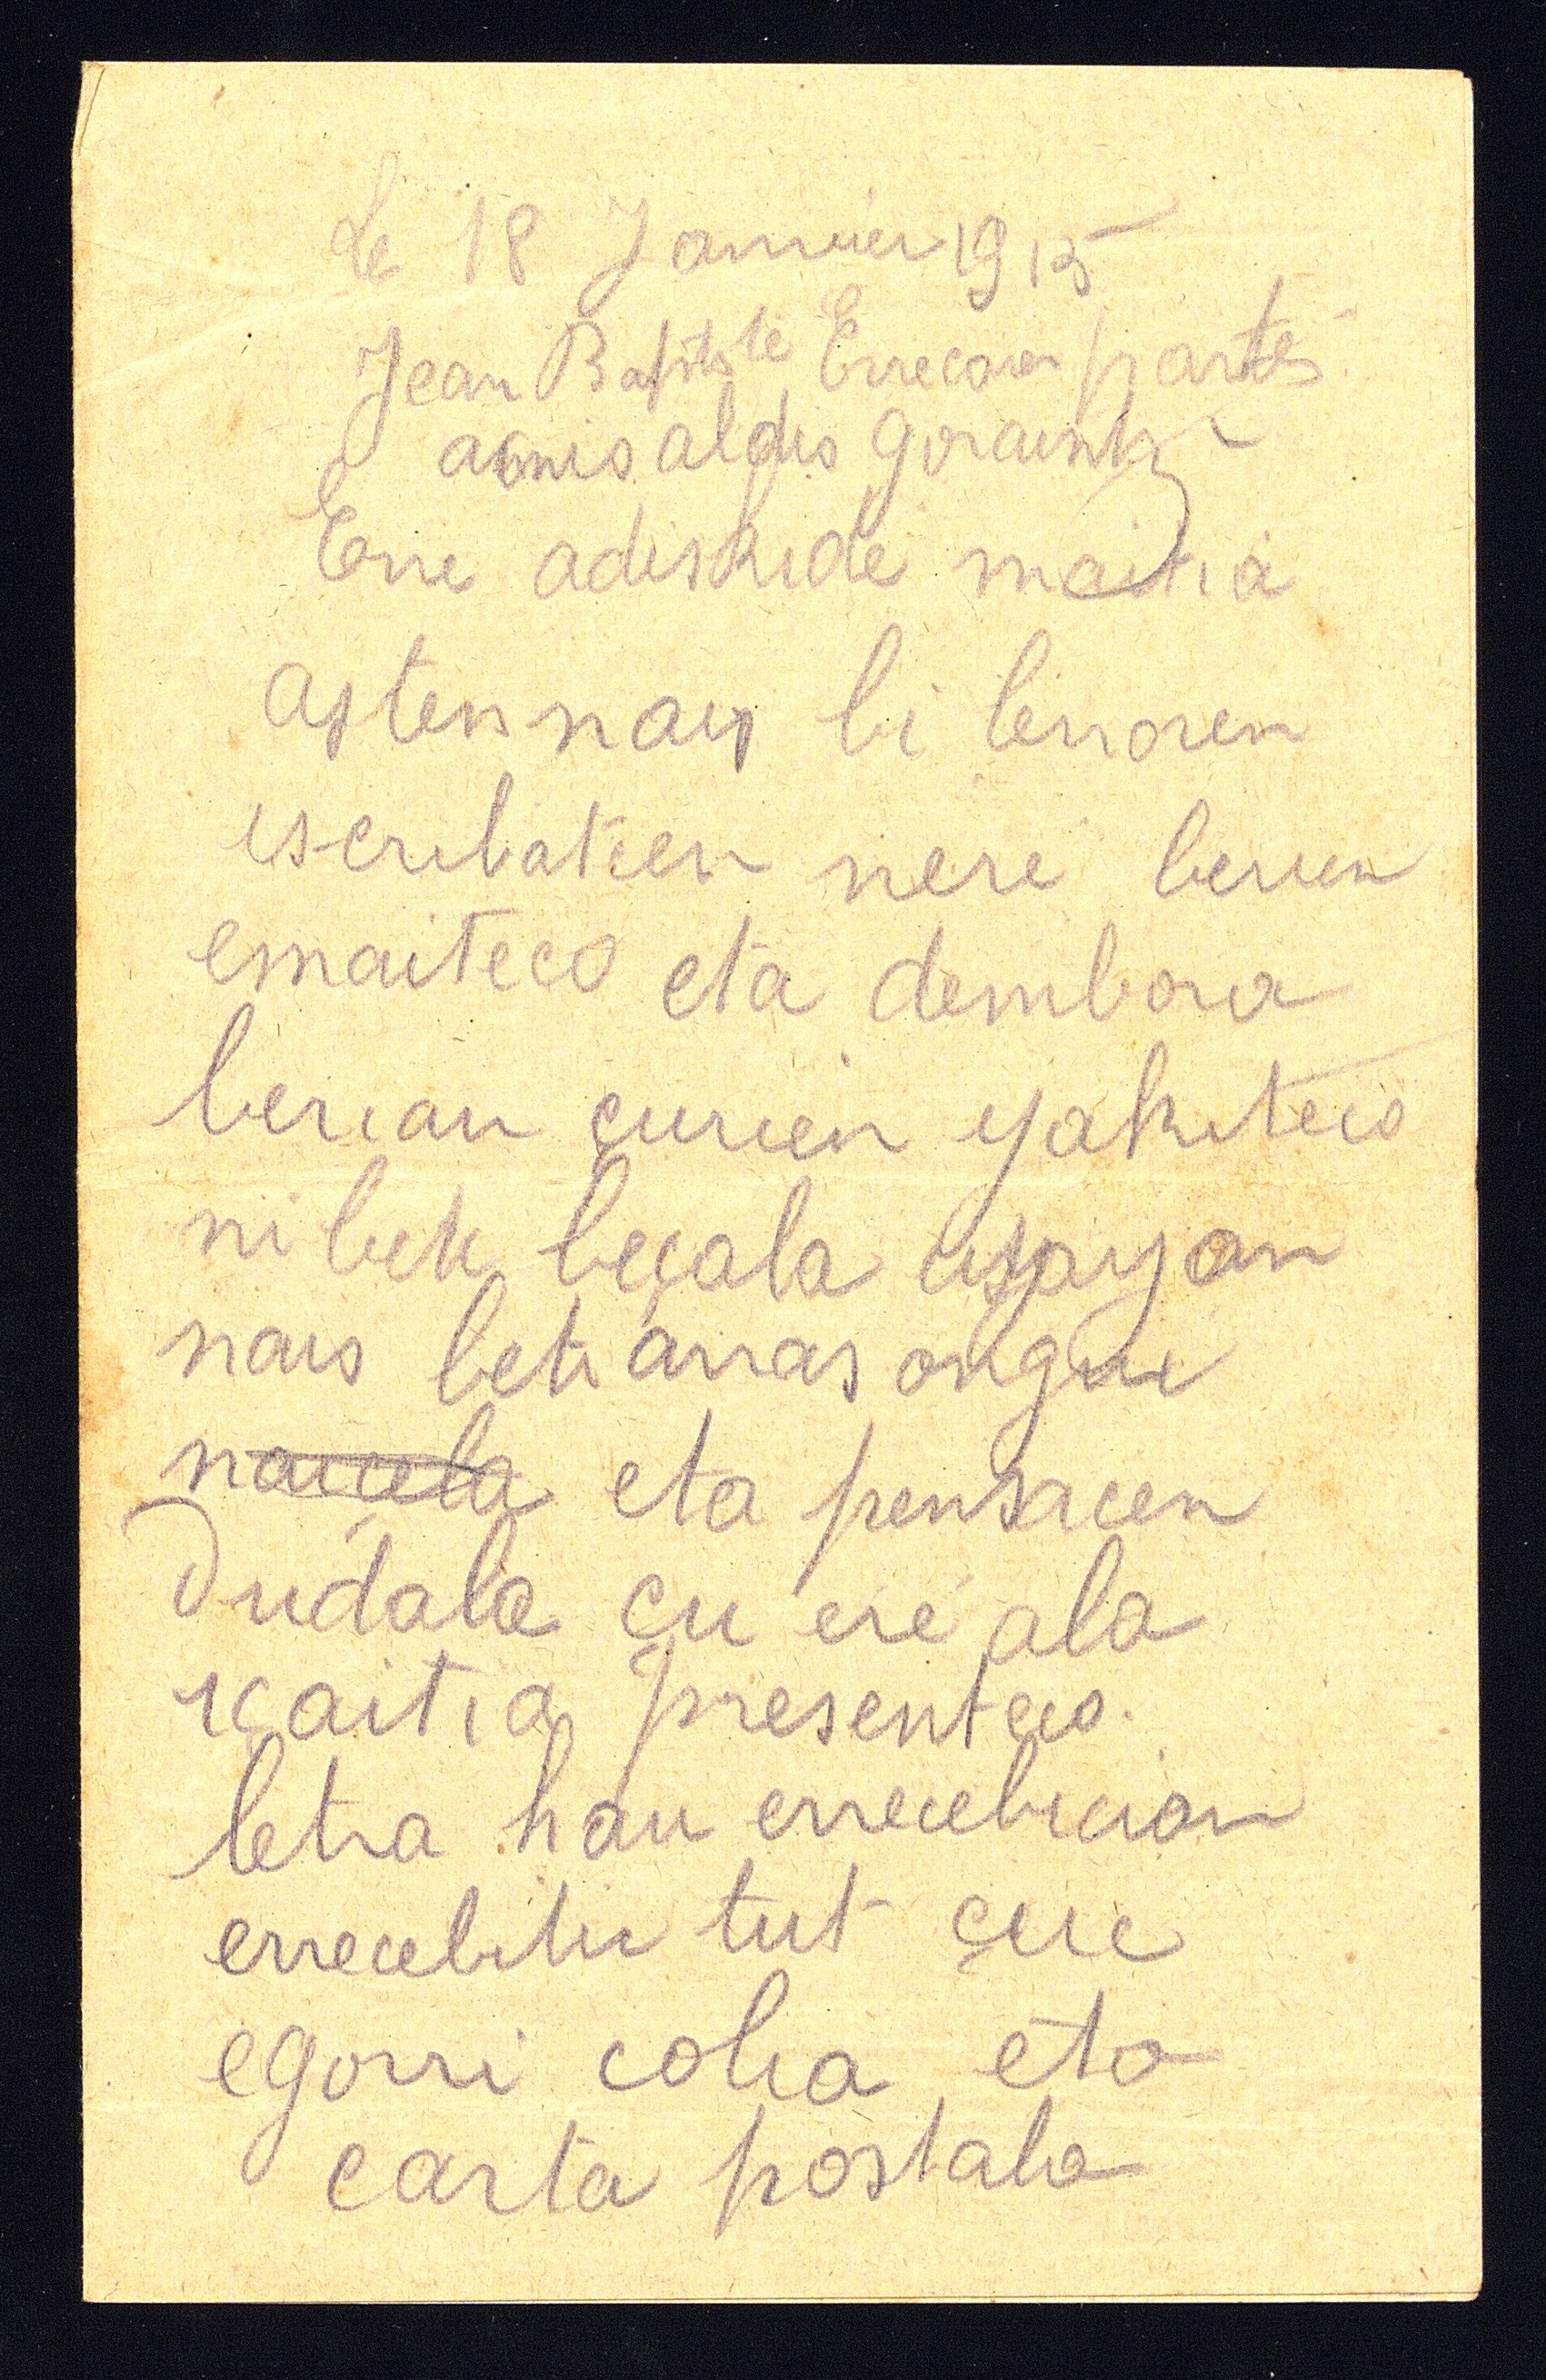 Le 18 Janvier 1915
Jean Baptiste Errecaren partes
amis aldis goraintz
Ene adiskide maitia
asten nais bi lerroren
iscribatcen nere berien
emaiteco eta dembora
berian çurien yakiteco
ni beti beçala usayan
nais beti arras ongui
naicela eta pensacen
dudala çu ere ala
içaitia presenteco.
letra hau errecebician
errecebitu tut çuc
egorri colia eta
carta postala